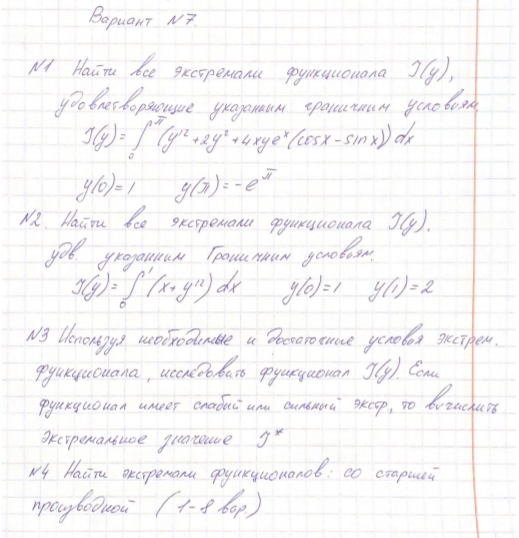 Вариант №7
№1 Найти все экстремали функционала J(y),
удовлетворяющие указанным граничным условиям.
J(y)=∫₀^π (y'²+2y²+4xye^x(cosx-sinx))dx
y(0)=1 y(π)=-e^π
№2. Найти все экстремали функционала J(y).
удв. указанным Граничным условиям.
J(y)=∫₀¹(x+y'²)dx y(0)=1 y(1)=2
№3 Используя необходимые и достаточные условия экстрем.
функционала, исследовать функционал J(y). Если
функционал имеет слабый или сильный экстр, то вычислить
экстремальное значение J*
№4 Найти экстремали функционалов: со старшей
производной (1-8 вар)